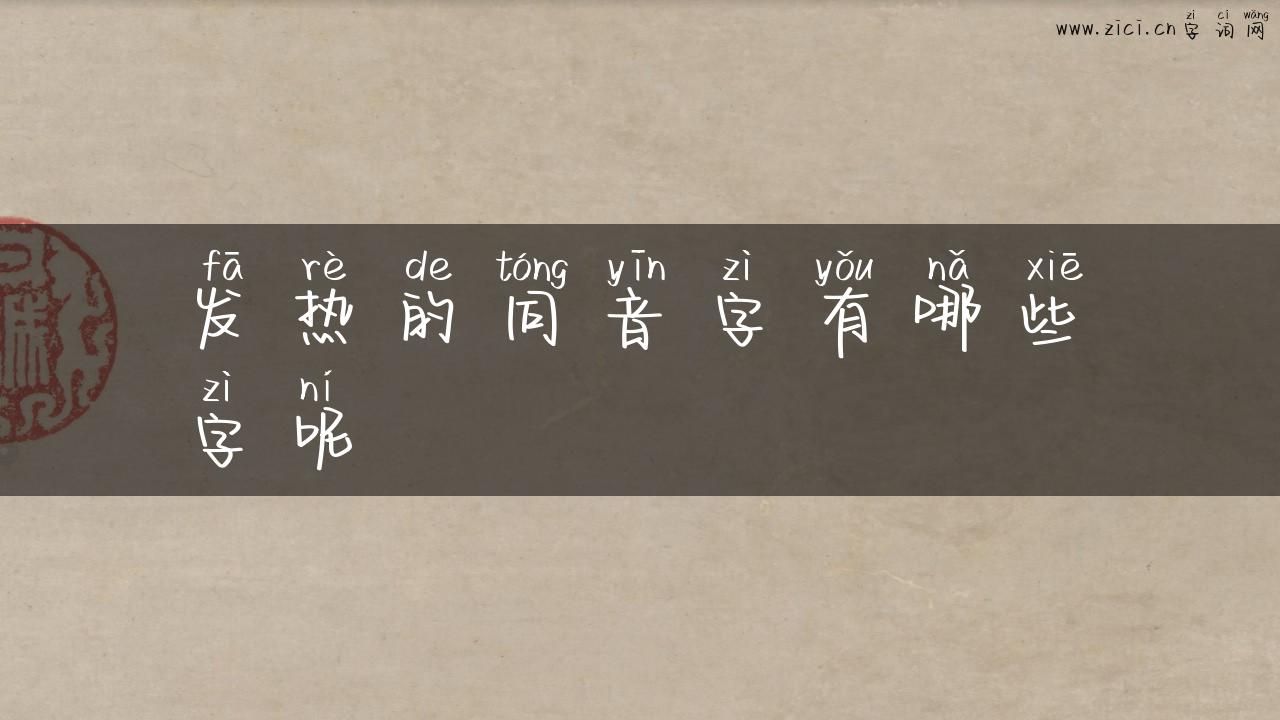 zì cí wǎng
www.zici.cn字词网
fā rè de tóng yīn zì yǒu nǎ xiē
发热的同音字有哪些
zì ní
字呢